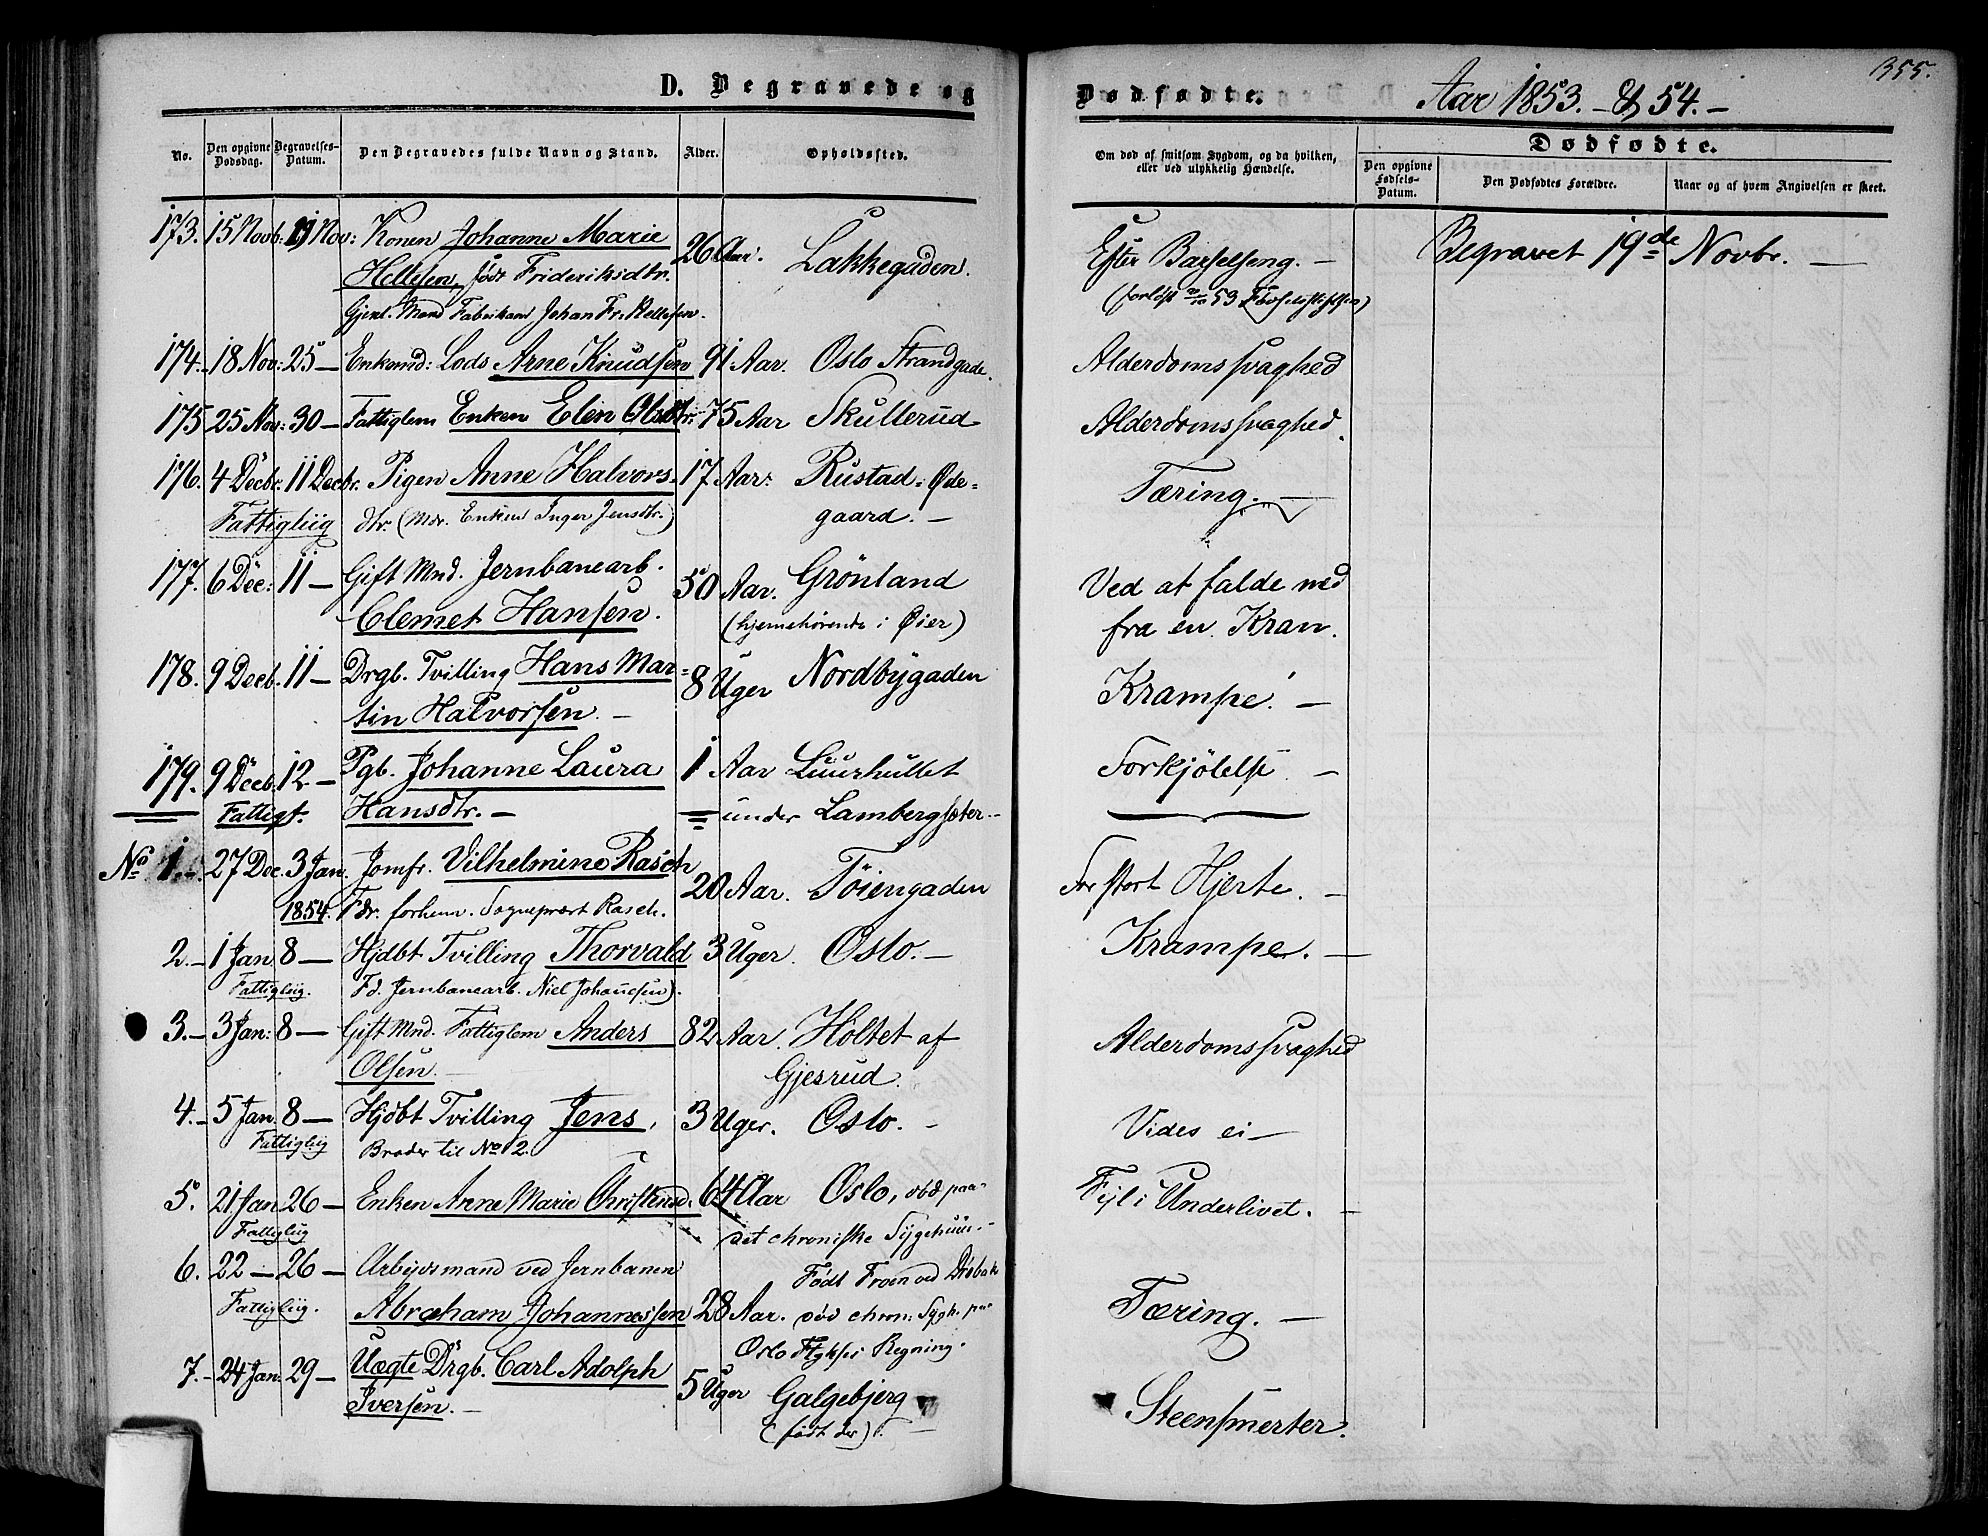 355.
D. Begravede og Dødfødte. Aar 1853. & 54. -
No.
Den opgivne Dødsdag.
Begravelses-Datum.
Den Begravedes fulde Navn og Stand.
Alder.
Opholdssted.
Om død af smitsom Sygdom, og da hvilken, eller ved ulykkelig Hændelse.
Dødfødte.
Den opgivne Fødsels-Datum.
Den Dødfødtes Forældre.
Naar og af hvem Angivelsen er skeet.
173. 15 Novb: 19 Nov: Konen Johanne Marie 26 Aar. Lakkegaden. Efter Barselseng. - Begravet 19de Novbr. -
Hellesen, født Frideriksdtr. (forløst 53
Gjenl. Mand Fabrikant Johan Fr. Hellesen.
174. 18 Nov: 25 - Enkemd: Lods Arne Knudsen 91 Aar. Oslo Strandgade. Alderdomssvaghed
175 25 Nov: 30 - Fattiglem Enken Elen Olsdtr. 75 Aar Skullerud Alderdomssvaghed.
176. 4 Decbr. 11 Decbr. Pigen Anne Halvors- 17 Aar: Rustad-Øde- Tæring. -
Fattigliig dtr. (Mdr. Enken Inger Jensdtr.) gaard. -
177. 6 Dec: 11 - Gift Mnd. Jernbanearb. 50 Aar. Grönland Ved at falde ned
Clemet Hansen. (hjemehörende i Øier) fra en Kran.
178. 9 Decb. 11 - Drgb. Tvilling Hans Mar- 8 Uger Nordbygaden Krampe. -
tin Halvorsen. -
179. 9 Decb. 12 - Pgb. Johanne Laura 1 Aar Luurhullet Forkjølelse -
Fattigt. Hansdtr. - under Lambergsæter -
No 1. 27 Dec. 3 Jan. Jomfr. Vilhelmine Rasch 20 Aar. Töiengaden For stort Hjerte. -
1854. Fdr. forhen. Sognepræst Rasch.
2. - 1 Jan. 8 - Hjdbt Tvilling Thorvald 3 Uger. Oslo. - Krampe. -
Fattigliig. Fd. Jernbanearb. Niel Johansen).
3. - 3 Jan: 8 - Gift Mnd. Fattiglem Anders 82 Aar. Holtet af Alderdomssvaghed
Olsen. - Gjesrud.
4. - 5 Jan. 8 - Hjdbt Tvilling Jens, 3 Uger. Oslo. - Vides ei -
Fattigliig Broder til No 2.
5. 21 Jan 26 - Enken Anne Marie Christensd. 64 Aar Oslo, død paa Fejl i Underlivet. -
Fattigliig det chroniske Sygehuus. -
6. 22 - 26 - Arbejdsmand ved Jernbanen Født Froen ved Drøbak
Fattigliig. Abraham Johannessen 28 Aar. død chron: Sygh. paa Tæring. -
Oslo Regning.
7. - 24 Jan: 29 - Uægte Drgb. Carl Adolph 5 Uger Galgebjerg Steensmerter.
Iversen. - (født der).